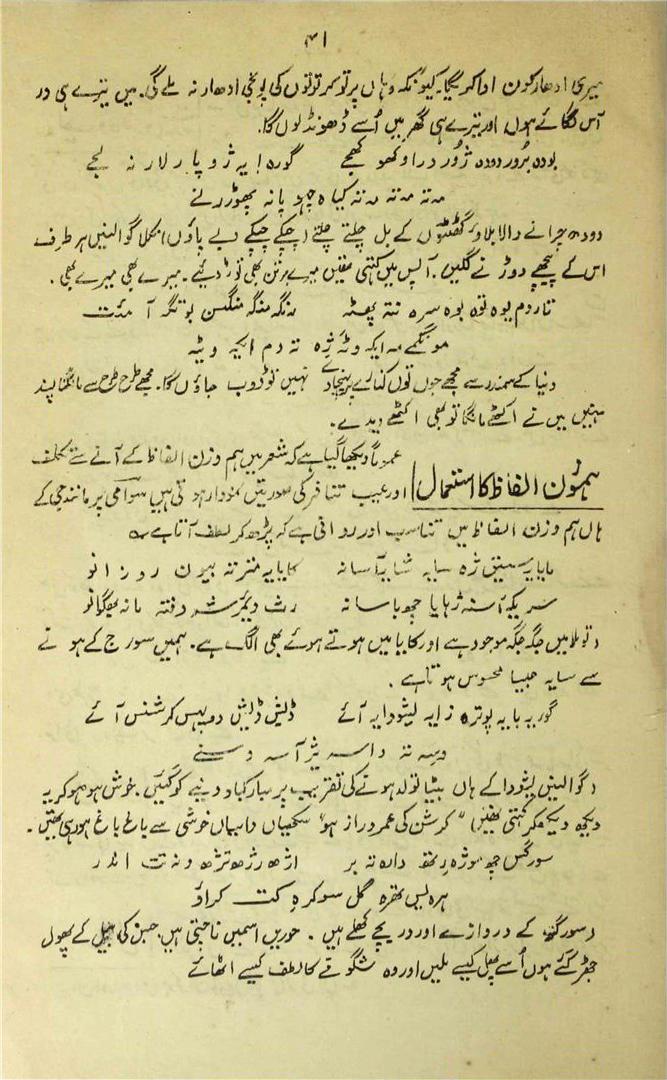 ۴۱
میری ادھار کون ادا کریگا۔ کیونکہ وہاں پر تو کرتوتوں کی پونجی ادھار نہ ملے گی۔ میں تیرے ہی در
آس لگائے ہوں اور تیرے ہی گھر میں اُسے ڈھونڈ لوں گا۔
بوده بُرور دوده ژوُر دراو کھو کھجے گوره! یہ ژو پارلار نہ لجے
مہ تہ مہ تہ مہ تہ کیاہ چھو پانہ پھوژرنے
دودھ چرانے والا بلاؤ گھٹنوں کے بل چلتے چلتے (چپکے چپکے دبے پاؤں) نکلا گوالنیں ہر طرف
اس کے پیچھے دوڑنے لگیں۔ آپس میں کہتی تھیں میرے برتن بھی توڑ دیئے۔ میرے بھی میرے بھی۔
تاردم یوه توه بوه سره نتہ پھٹہ منگہ منگہ منگسن بو تنگہ آمئت
مونگمے مہ ایکہ وٹہ ژه تہ دم ایکہ وٹہ
دنیا کے سمندر سے مجھے جوں توں کنارے پر پہنچا دے نہیں تو ڈوب جاؤں گا۔ مجھے طرح طرح سے مانگنا پسند
نہیں میں نے اکٹھے مانگا تو بھی اکٹھے دیدے۔
عموماً دیکھا گیا ہے کہ شعر میں ہم وزن الفاظ کے آنے سے تکلف
ہموزن الفاظ کا استعمال اور عیب تنافر کی صورتیں نمودار ہوتی ہیں سوامی پرمانند جی کے
ہاں ہم وزن الفاظ میں تناسب اور روانی ہے کہ پڑھ کر لطف آتا ہے
مایایہ ستیق ژه سایہ شایہ آسانہ کایایہ منزتہ بیون روزانو
سریکہ آسنہ ژھایا چھوباسانہ
(تو مایا میں جگہ جگہ موجود ہے اور کایا میں ہوتے ہوئے بھی الگ ہے۔ ہمیں سورج کے ہونے
سے سایہ جیسا محسوس ہوتا ہے۔
گوریہ بایہ پوتره زایہ یشودایہ آئے ڈلیش ڈلیش دوپہس کرشنس آئے
دسہ تہ داسہ یژ آسہ وسنے
(گوالنیں یشودا کے ہاں بیٹا تولد ہونے کی تقریب پر مبارکباد دینے کو گئیں۔ خوش ہو ہو کر یہ
دیکھ دیکھ کر کہتی تھیں "کرشن کی عمر دراز ہو" سکھیاں داسیاں خوشی سے باغ باغ ہو رہی تھیں۔
سورگس چھ موژه رتھ داره تہ بر اژھ رژھ نژھ ونہ تت اندر
ہره لس بقره گل سوکره کت کراو
(سورگہ کے دروازے اور دریچے کھلے ہیں۔ حوریں اسمیں ناچتی ہیں، جس کی بیل کے پھول
جھڑ گئے ہوں اُسے پھل کیسے ملیں اور وہ شگوفے کا لطف کیسے اٹھائے